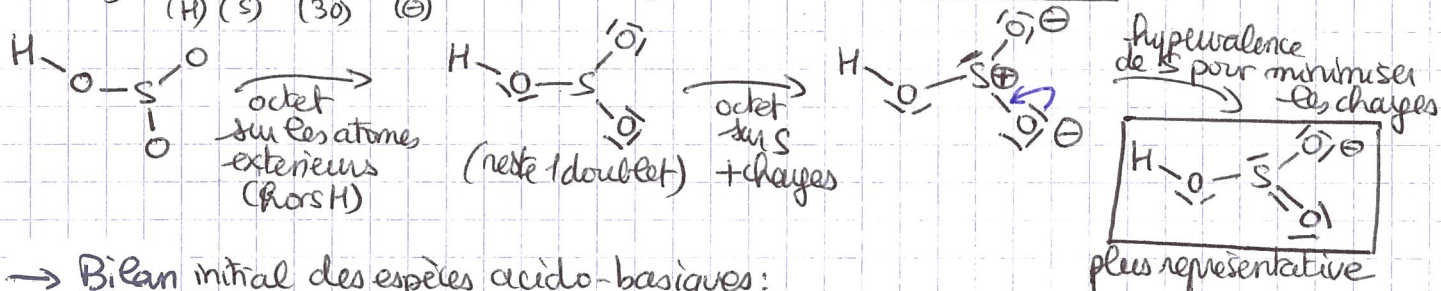 (H) (S) (3O) (⊖)
H O S O O
octet
sur les atomes
extérieurs
(hors H)
H O S O O
(reste 1 doublet)
octet
sur S
+ charges
H O S⊕ O⊖ O⊖
hypervalence
de S pour minimiser
les charges
H O S O⊖ O
plus représentative
→ Bilan initial des espèces acido-basiques: